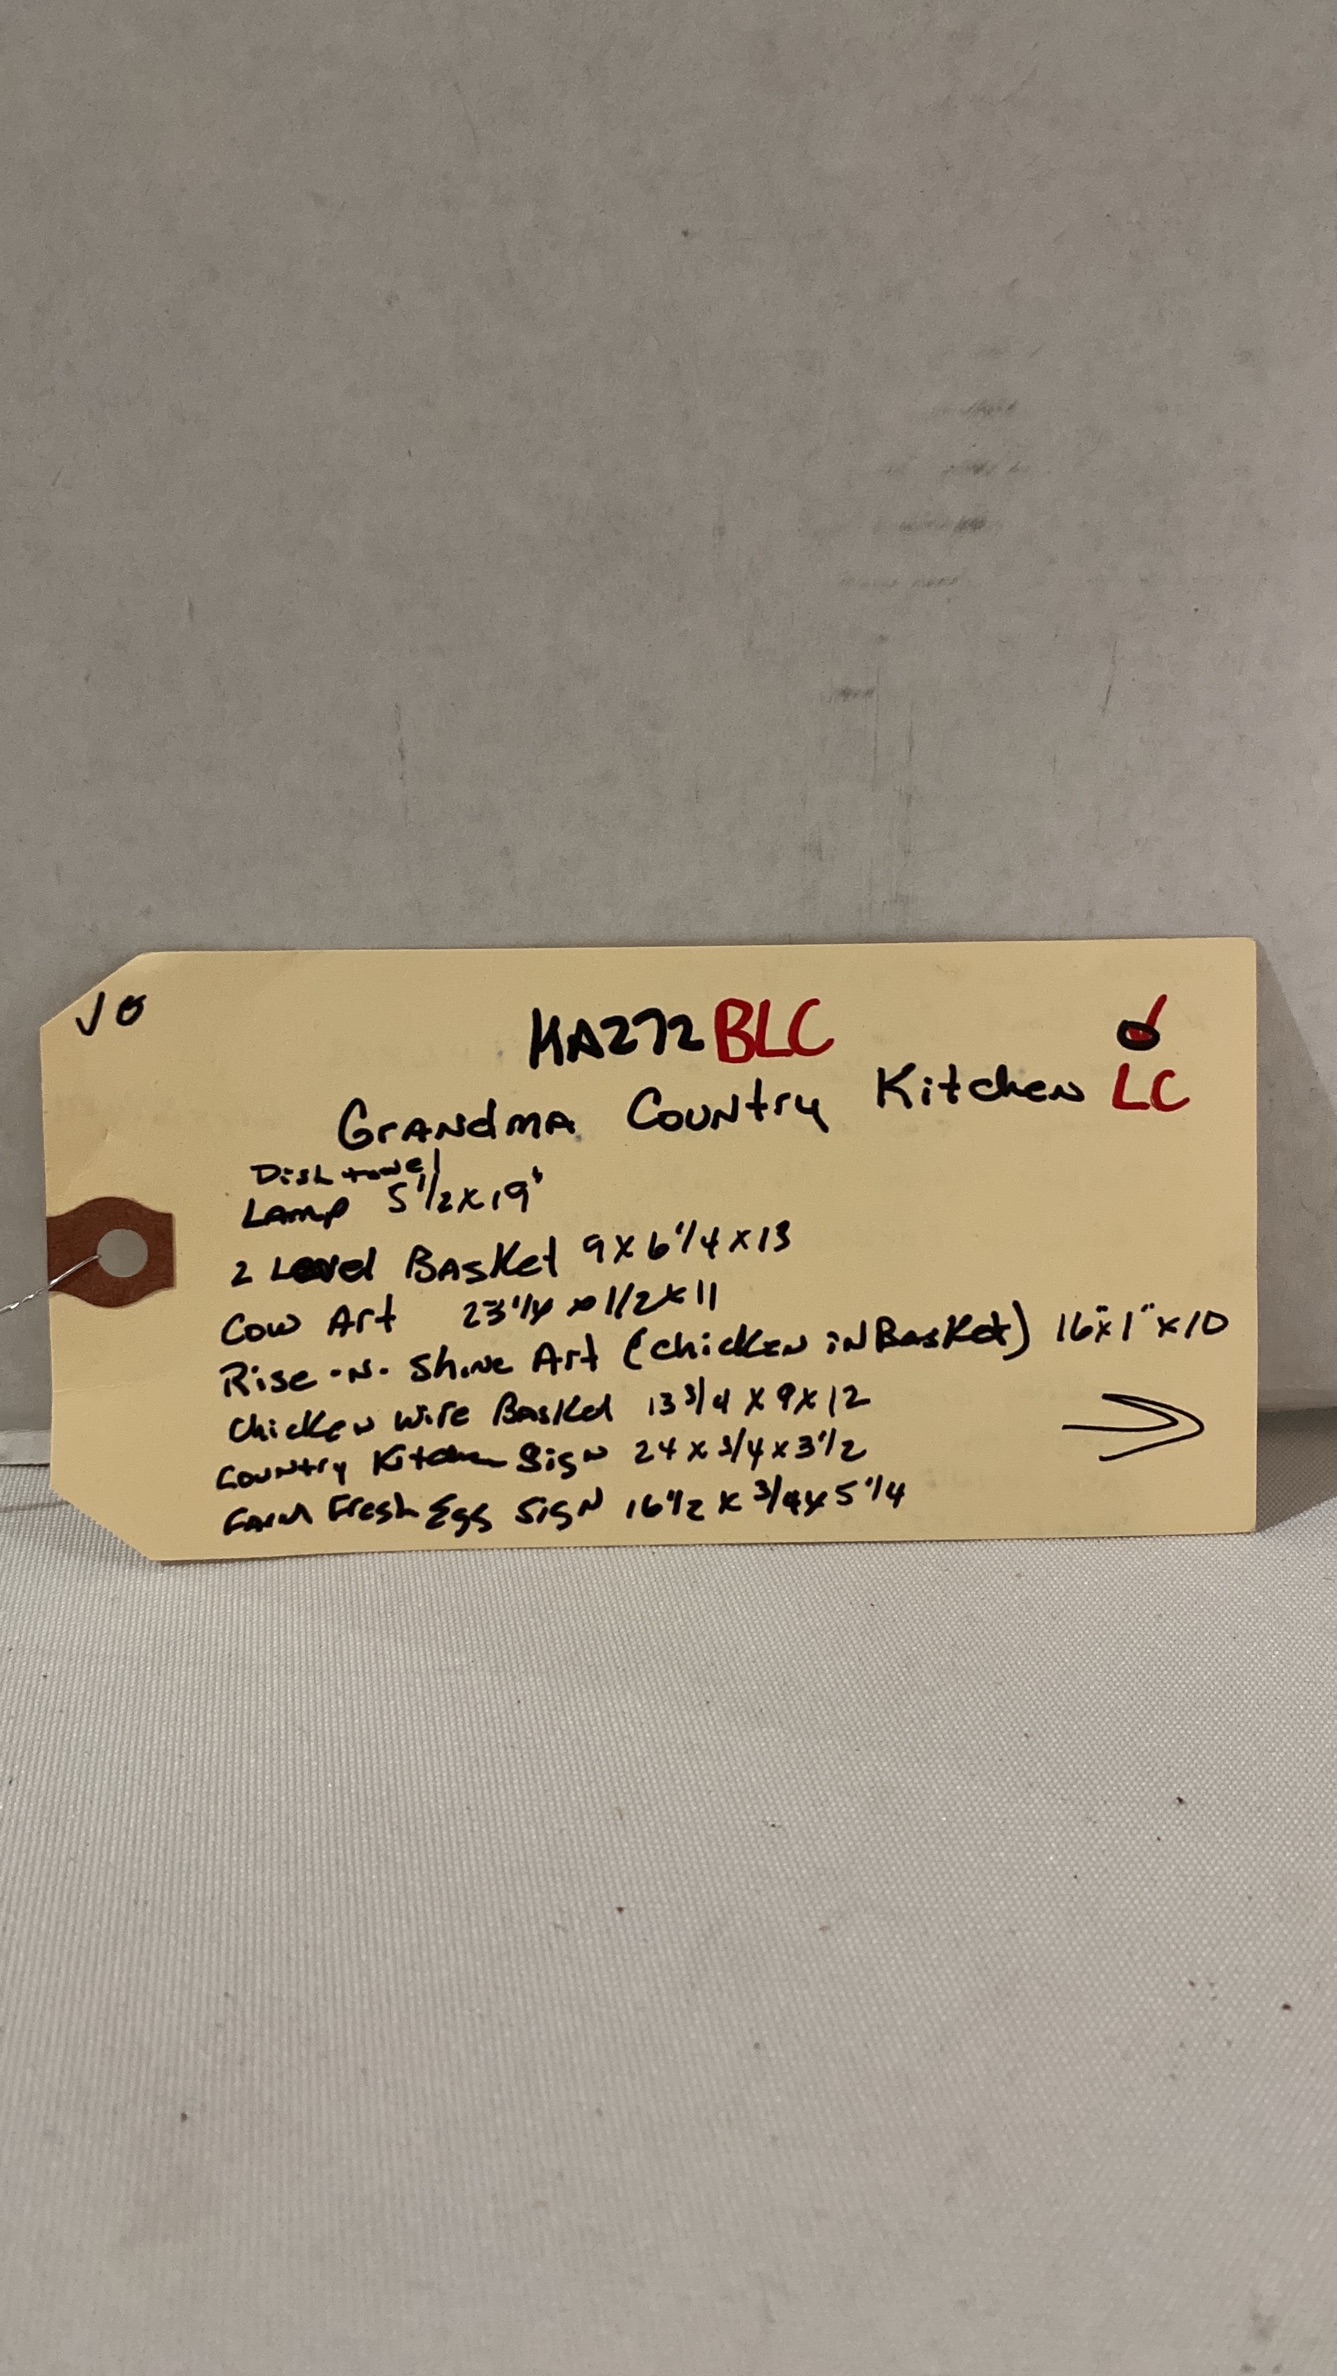 JO
KA272BLC
Grandma Country Kitchen LC
Dish towel
Lamp 5 1/2 x 19"
2 Level Basket 9 x 6 1/4 x 13
Cow Art 23 1/4 x 1/2 x 11
Rise -N- Shine Art (Chicken in Basket) 16" x 1" x 10
Chicken Wire Basket 13 3/4 x 9 x 12
Country Kitchen Sign 24 x 3/4 x 3 1/2
Farm Fresh Egg Sign 16 1/2 x 3/4 x 5 1/4